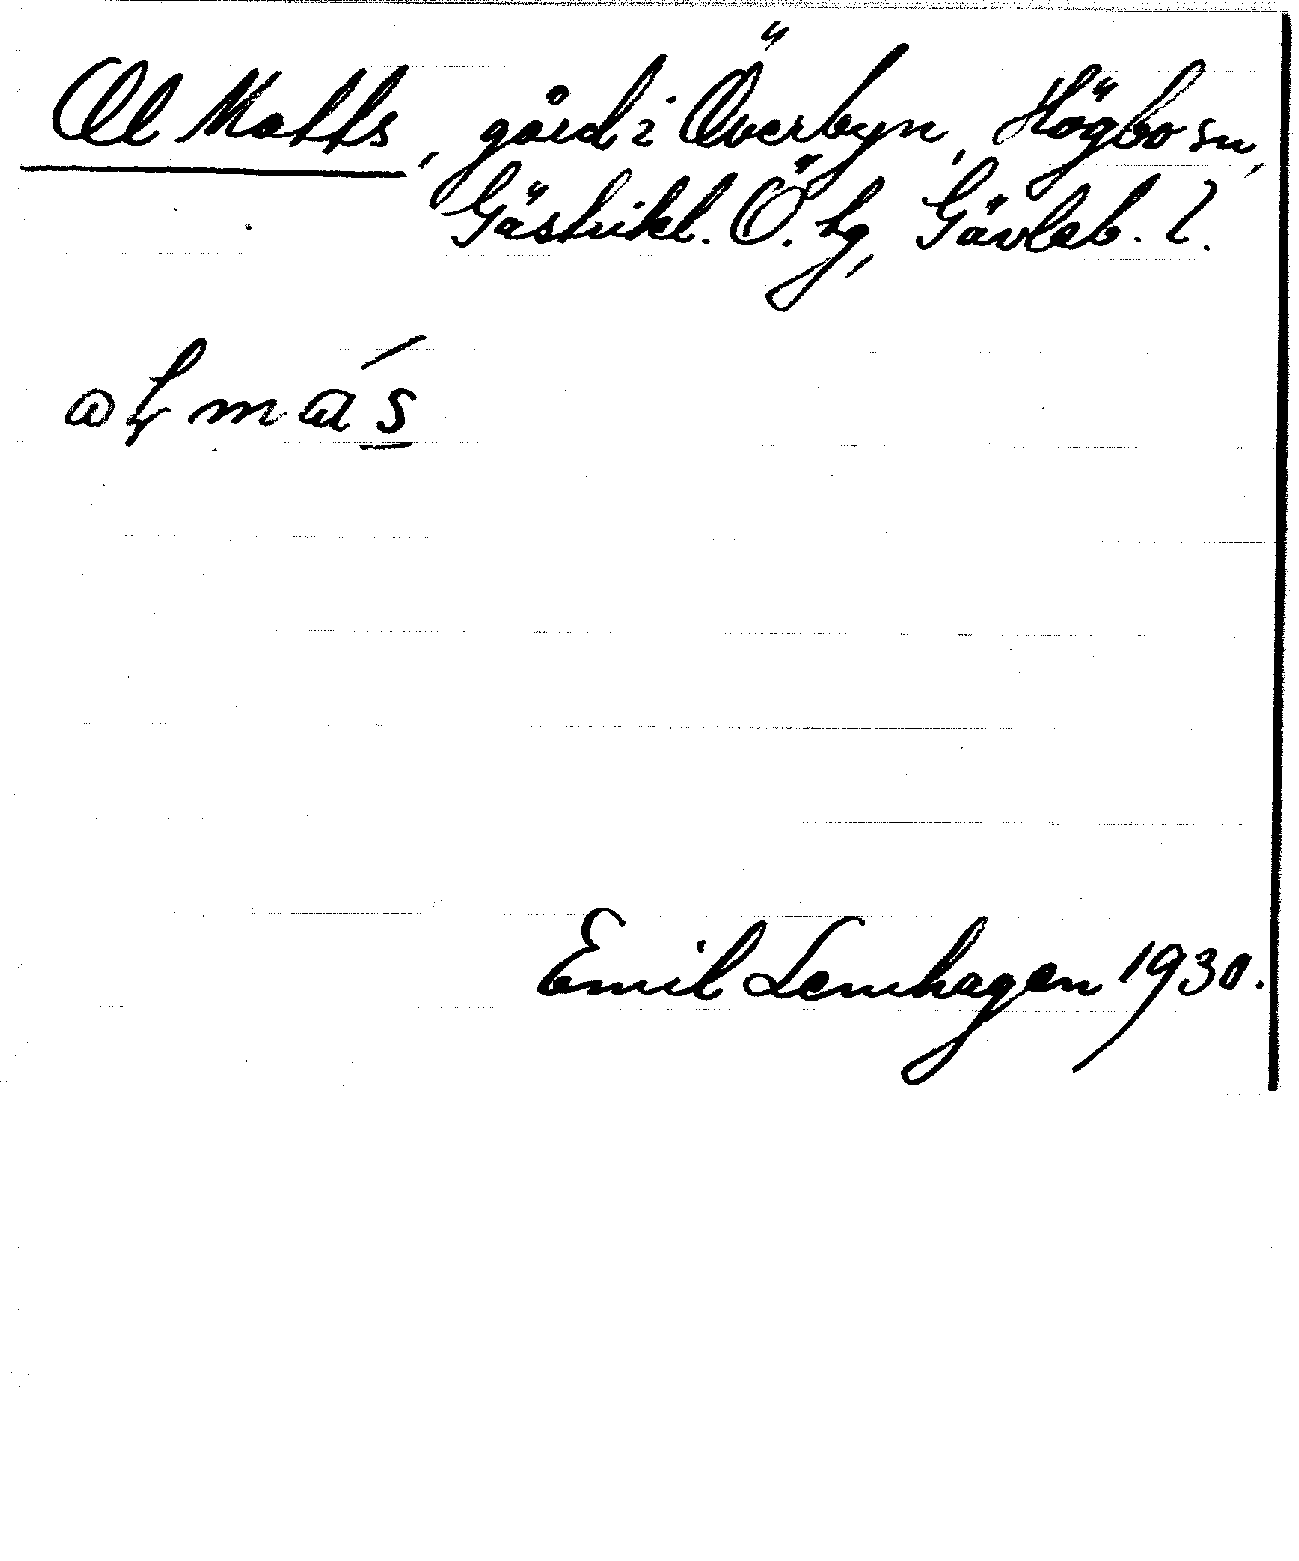 Ol Matts, gård i Överbyn, Högbo sn,
Gästrikl. Ö. hg, Gävleb. l.
Emil Lernhagen 1930.